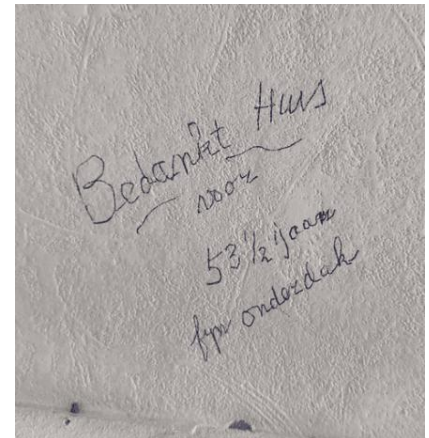 Bedankt Huis
voor
53 1/2 jaar
fijn onderdak